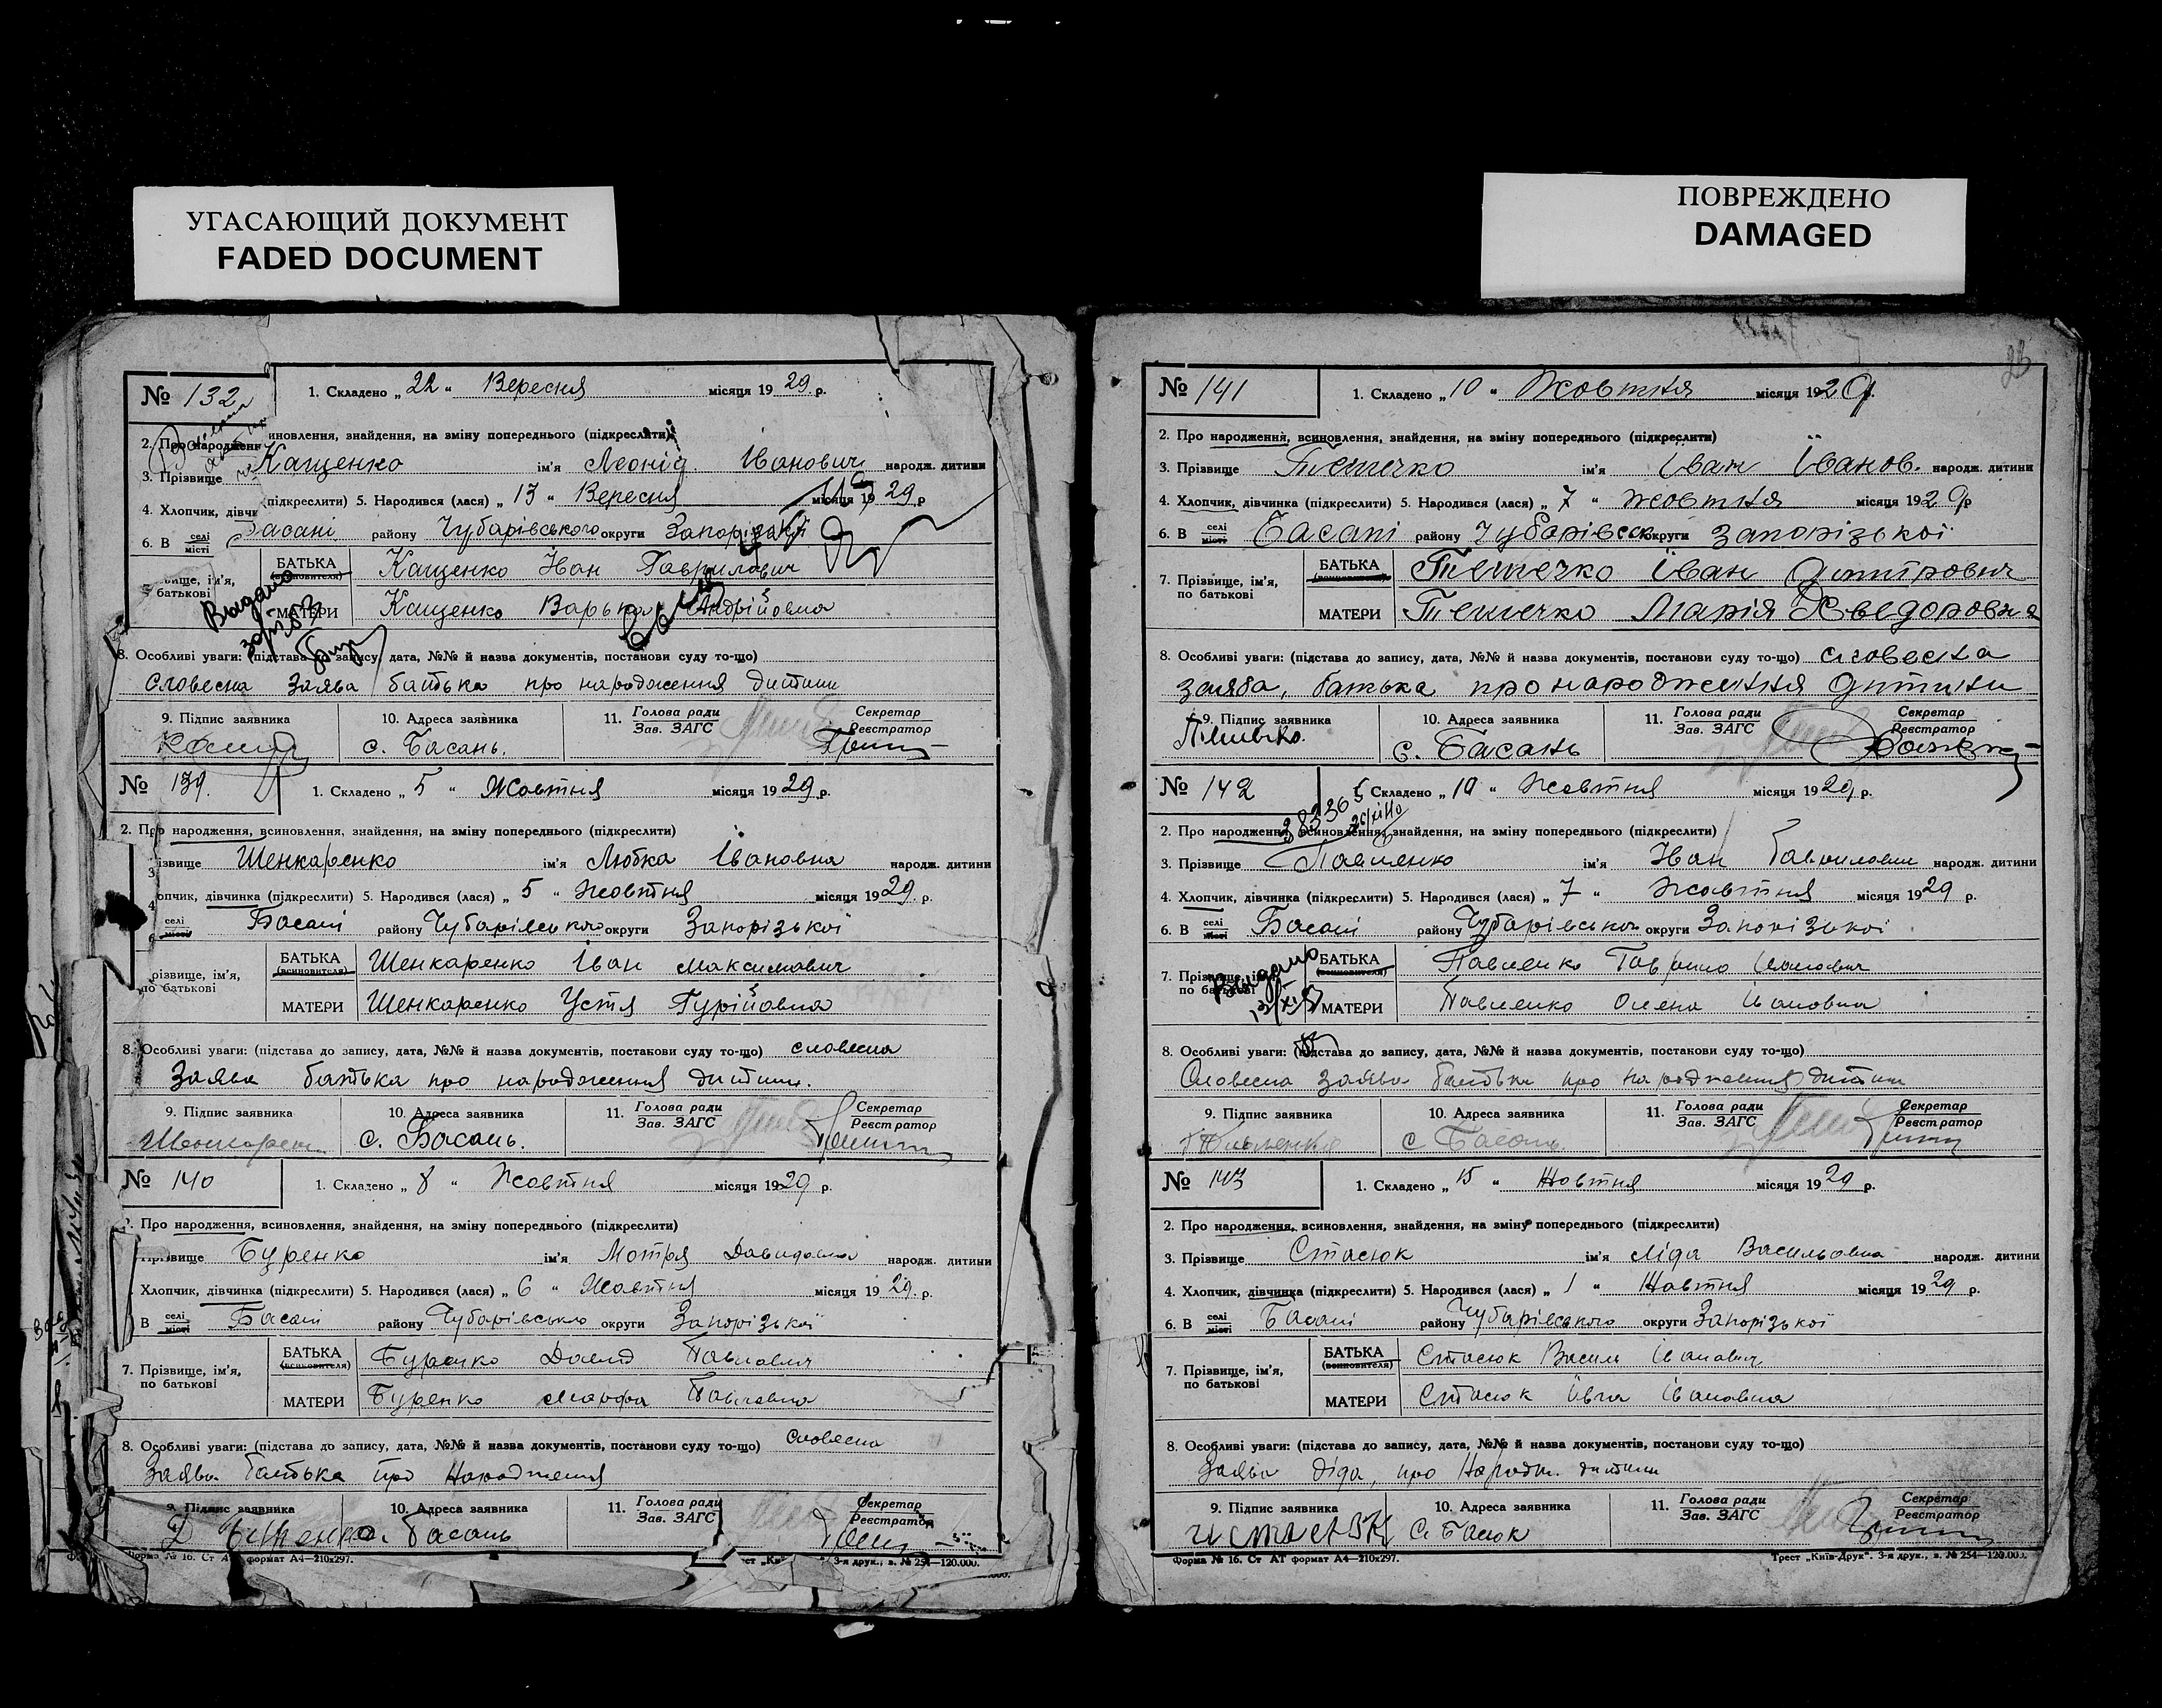 УГАСАЮЩИЙ ДОКУМЕНТ
FADED DOCUMENT
ПОВРЕЖДЕНО
DAMAGED
№ 132
1. Складено „ 22 “ Вересня місяця 1929 р.
2. Про народження иновлення, знайдення, на зміну попереднього (підкреслити)
3. Прізвище Кащенко ім'я Леонід Іванович народж. дитини
4. Хлопчик, дівч (підкреслити) 5. Народився (лася) „ 13 “ Вересня місяця 1929 р
6. В селі місті Басані району Чубарівського округи Запорізької
вище, ім'я, батькові
БАТЬКА Кащенко Іван Гаврилович
МАТЕРИ Кащенко Варька Андрійовна
Выдано
8. Особливі уваги: (підстава до запису, дата, №№ й назва документів, постанови суду то-що)
словесна заява батька про народження дитини
9. Підпис заявника 10. Адреса заявника 11. Голова ради Зав. ЗАГС Секретар Реєстратор
с. Басань.
№ 139.
1. Складено „ 5 “ Жовтня місяця 1929 р.
2. Про народження, всиновлення, знайдення, на зміну попереднього (підкреслити)
ізвище Шенкаренко ім'я Любка Івановна народж. дитини
опчик, дівчинка (підкреслити) 5. Народився (лася) „ 5 “ Жовтня місяця 1929. р.
селі місті Басані району Чубарівського округи Запорізької
різвище, ім'я, по батькові
БАТЬКА (всиновителя) Шенкаренко Іван Максимович
МАТЕРИ Шенкаренко Устя Гурійовна
8. Особливі уваги: (підстава до запису, дата, №№ й назва документів, постакови суду то-що) словесна
Заява батька про народження дитини.
9. Підпис заявника 10. Адреса заявника 11. Голова ради Зав. ЗАГС Секретар Реєстратор
с. Басань.
№ 140
1. Складено „ 8 “ Жовтня місяця 1929 р.
2. Про народження, всиновлення, знайдення, на зміну попереднього (підкреслити)
вище Буренко ім'я Мотря Давидовна народж. дитини
Хлопчик, дівчинка (підкреслити) 5. Народився (лася) „ 6 “ Жовтня місяця 1929. р.
В селі місті Басані району Чубарівського округи Запорізької
7. Прізвище, ім'я, по батькові
БАТЬКА (всиновителя) Буренко Давид Павлович
МАТЕРИ Буренко Марфа Павловна
8. Особливі уваги: (підстава до запису, дата, №№ й назва документів, постанови суду то-що) Словесна
Заява батька про Народження
9. Підпис заявника 10. Адреса заявника 11. Голова ради Зав. ЗАГС Секретар Реєстратор
с. Басань
Форма № 16. Ст АТ формат А4—210x297. 3-я друк., з. № 254—120.000.
№ 141
1. Складено „ 10 “ Жовтня місяця 1929 р.
2. Про народження, всиновлення, знайдення, на зміну попереднього (підкреслити)
3. Прізвище Тетечко ім'я Іван Іванов. народж. дитини
4. Хлопчик, дівчинка (підкреслити) 5. Народився (лася) „ 7 “ жовтня місяця 1929 р
6. В селі місті Басані району Чубарівськ округи Запорізької
7. Прізвище, ім'я, по батькові
БАТЬКА Тетечко Іван Дмитрович
МАТЕРИ Тетечко Марія Хведоровна
8. Особливі уваги: (підстава до запису, дата, №№ й назва документів, постанови суду то-що) словесна
заява, батька про народження дитини
9. Підпис заявника 10. Адреса заявника 11. Голова ради Зав. ЗАГС Секретар Реєстратор
с. Басань
№ 142
1. Складено „ 10 “ Жовтня місяця 1929 р.
2. Про народження, всиновлення, знайдення, на зміну попереднього (підкреслити)
3. Прізвище Павленко ім'я Іван Гаврилович народж. дитини
4. Хлопчик, дівчинка (підкреслити) 5. Народився (лася) „ 7 “ Жовтня місяця 1929 р.
6. В селі місті Басані району Чубарівського округи Запорізької
7. Прізвище, ім'я, по батькові
БАТЬКА (всиновителя) Павленко Гаврило
МАТЕРИ Павленко Олена Івановна
Выдано
8. Особливі уваги: (підстава до запису, дата, №№ й назва документів, постакови суду то-що)
Словесна заява батька про народження дитини
9. Підпис заявника 10. Адреса заявника 11. Голова ради Зав. ЗАГС Секретар Реєстратор
с Басань
№ 143
1. Складено „ 15 “ Жовтня місяця 1929 р.
2. Про народження, всиновлення, знайдення, на зміну попереднього (підкреслити)
3. Прізвище Стасюк ім'я Ліда Васильовна народж. дитини
4. Хлопчик, дівчинка (підкреслити) 5. Народився (лася) „ 1 “ Жовтня місяця 1929 р.
6. В селі місті Басані району Чубарівського округи Запорізької
7. Прізвище, ім'я, по батькові
БАТЬКА (всиновителя) Стасюк Василь Іванович
МАТЕРИ Стасюк Івга Івановна
8. Особливі уваги: (підстава до запису, дата, №№ й назва документів, постанови суду то-що)
Заява діда, про Народж. дитини
9. Підпис заявника 10. Адреса заявника 11. Голова ради Зав. ЗАГС Секретар Реєстратор
Форма № 16. Ст АТ формат А4—210x297. Трест „Київ-Друк“. 3-я друк., з. № 254—120.000.